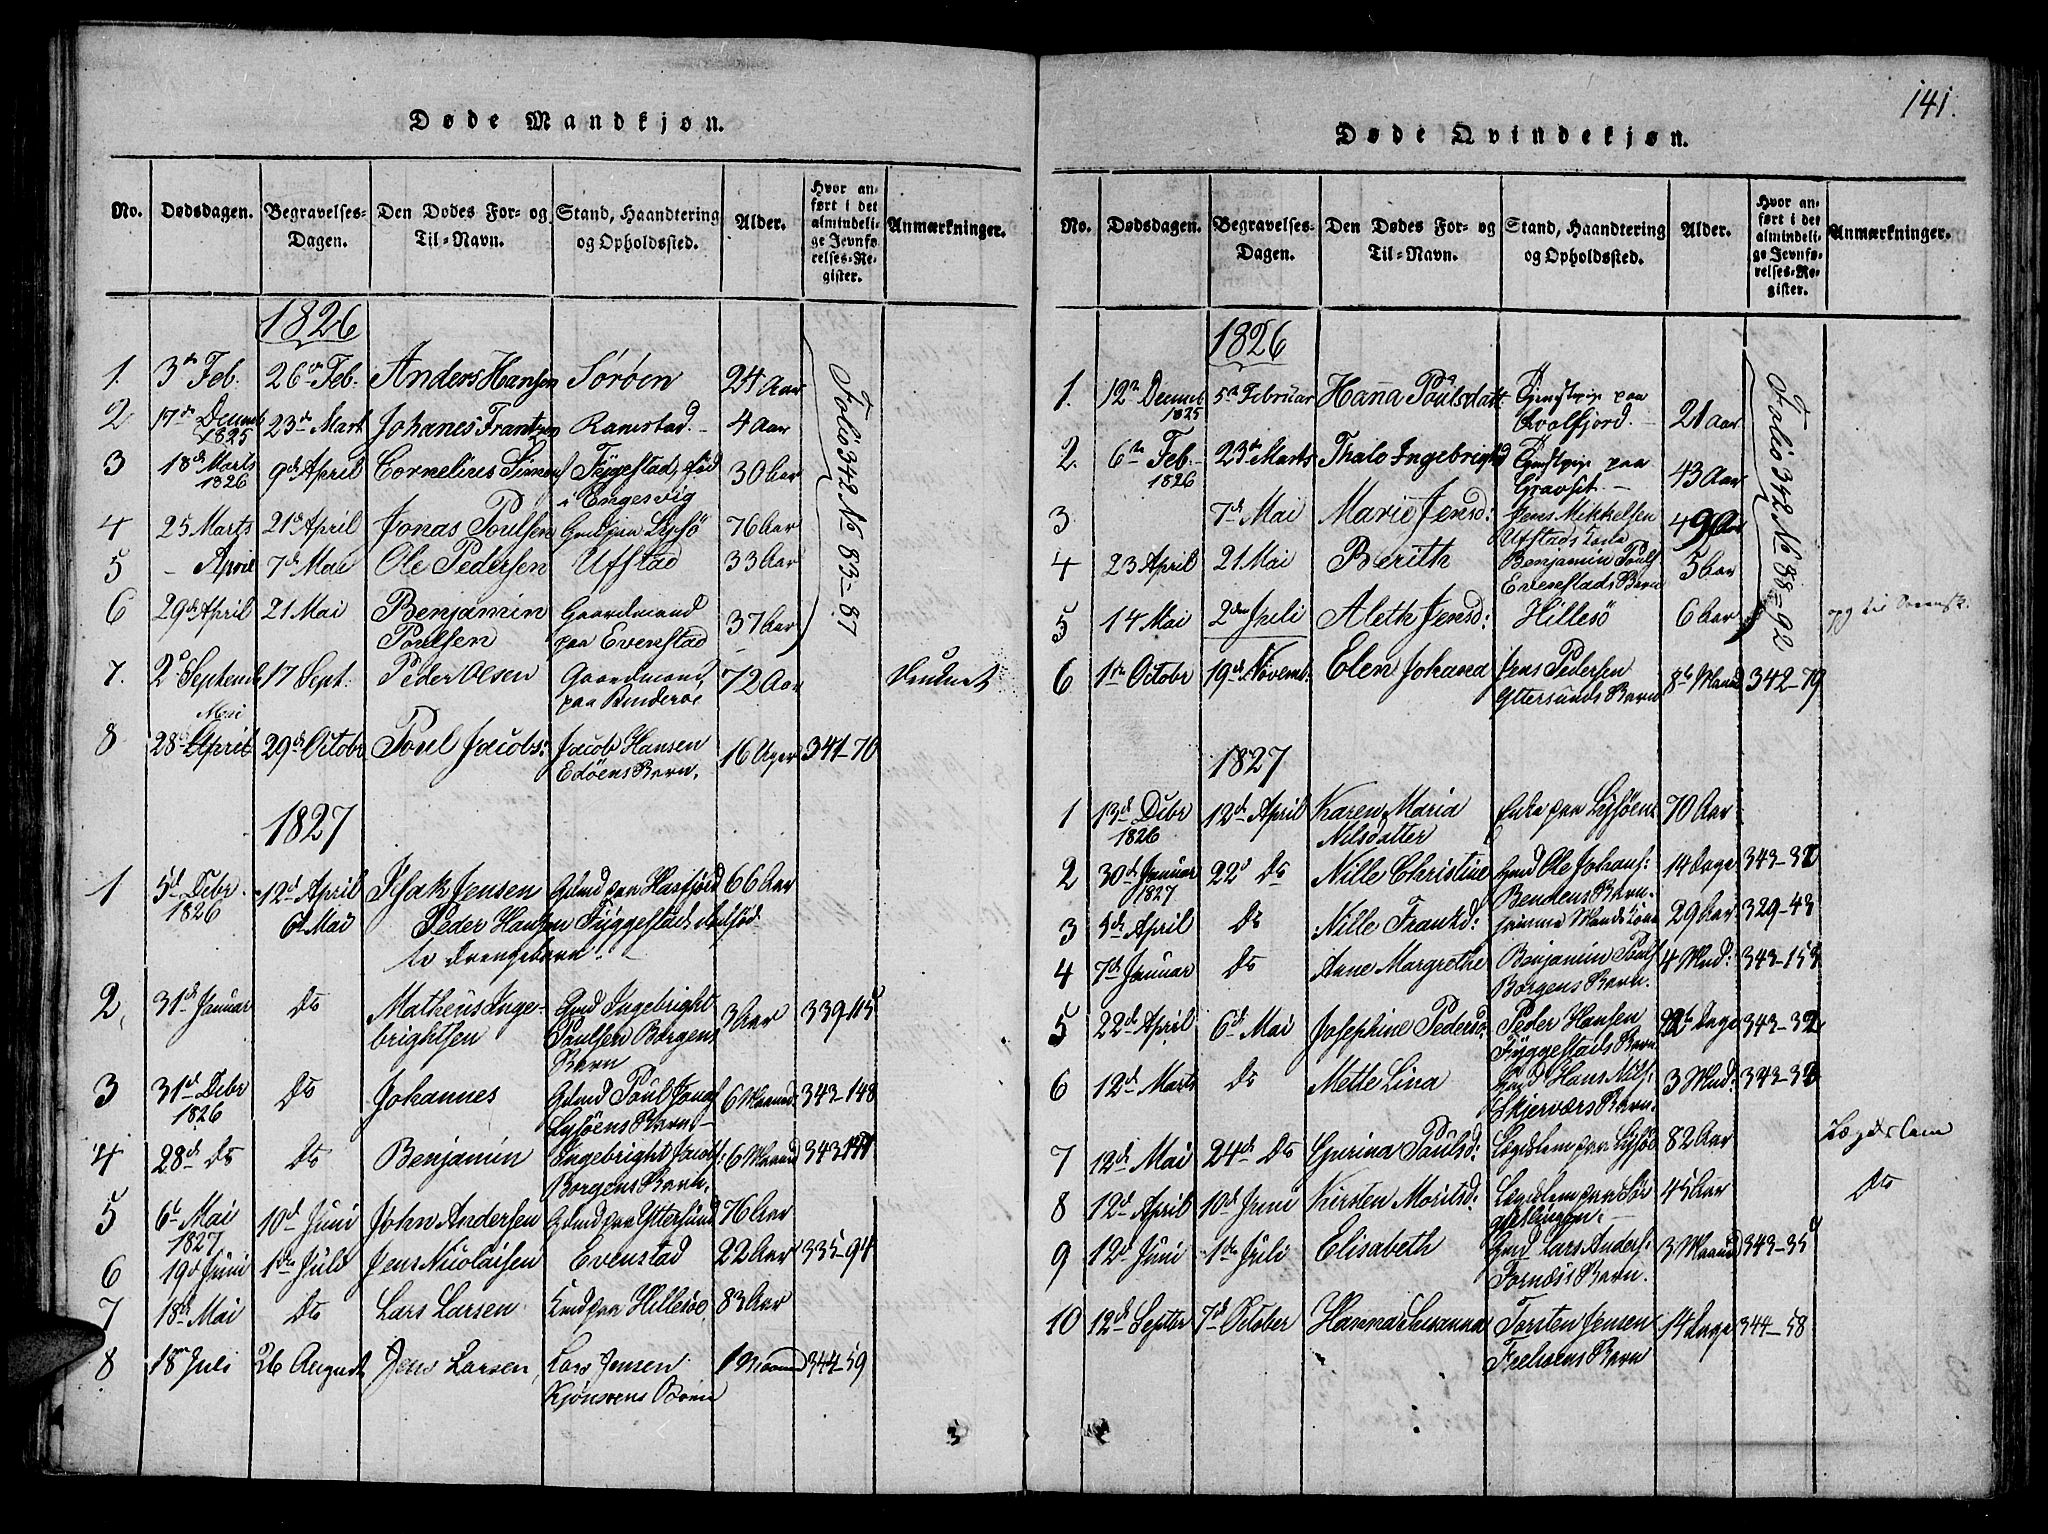 141.
Døde Mandkjøn.
No. Dødsdagen. Begravelses-Dagen. Den Dødes For- og Til-Navn. Stand, Haandtering og Opholdssted. Alder. Hvor anført i det almindelige Jevnførelses-Register. Anmærkninger.
1826
1. 3de Feb. 26de Feb. Anders Hansen Sørøen 24 Aar
2 17de Decemb 1825 23de Mart Johanes Frantzen Ramstad 4 Aar
3 18de Marts 1826 9de April Cornelius Simons Fyggestad, fød i Engesvig 30 Aar
4 25 Marts 21de April Jonas Poulsen Lysø 76 Aar
5 - April 7de Mai Ole Pedersen Ufstad 33 Aar
6 29de April 21 Mai Benjamin Poulsen Gaardmand paa Evenstad 37 Aar
Folio 342 No 83-87
7. 2d Septemb 17 Sept. Peder Olsen Gaardmand paa 72 Aar Druknet
8 28de April Mai 29de Octobr Poul Jacobs: Jacob Hansen Edøens Barn. 16 Uger 341-70
1827
1 5d Debr. 1826 12d April Isak Jensen Gdmd paa Havfjord 66 Aar
6d Mai Peder Hansen Fyggestads dødfød
te drengebarn.
2, 31d Januar Do Matheus Ingebrightsen Gmd Ingebright Paulsen Borgens Barn 3 Aar 339-115
3 31d Debr 1826 Do Johannes Gdmd Poul Jonas Lysøens Barn 6 Maaned 343-148
4 28d Do Do Benjamin Ingebright Jacobs: Borgens Barn. 6 Maaned 343
5 6d Mai 1827 10d Juni John Andersen Gdmd paa Yttersund 76 Aar
6 19d Juni 1de Juli Jens Nicolaisen Evenstad 22 Aar 335-94
7 18d Mai Do Lars Larsen paa Hillesøe 83 Aar
8 18 Juli 26 August Jens Larsen, Lars Jensen Barn 1 Maaned 344-59
Døde Qvindekjøn.
No. Dødsdagen. Begravelses-Dagen. Den Dødes For- og Til-Navn. Stand, Haandtering og Opholdssted. Alder. Hvor anført i det almindelige Jevnførelses-Register. Anmærkninger.
1826
1. 12te Decemb 1825 5te Februar Hanna Poulsdatt Tjenstpige paa Qvalfjord. 21 Aar
2. 6te Feb. 1826 23de Marts Thale Ingebrigtsd Tjenstpige paa Gravset 43 Aar
3 7de Mai Marie Jensd: Jens Mikkelsen Ufstads Kone 49 Aar
4 23 April 21 Mai Berith Benjamin Pouls Evenstads Barn 5 Aar
5 14 Mai 2den Juli Aleth Jensd: Hillesø 6 Aar
Folio 342 No 88-92
6 1te Octobr 19de Novemb. Elen Johana Jens Pedersen Yttersunds Barn 8te Maaned 342-79
1827
1 13d Debr 1826 12d April Karen Maria Nilsdatter Enke paa Lysøen 70 Aar
2 30d Januar 1827 22d Do Nille Christine Gmd Ole Johans: Barn. 14 Dage 343-3
3 5d April Do Nille Frantzd: samme Mands Kone 29 Aar 329-43
4 7d Januar Do Anne Margrethe Benjamin Pouls Borgens Barn. 4 Mnd: 343-153
5 22d April 6d Mai Josephine Pedersd: Peder Hansen Fyggestads Barn. Dage 343-32
6 12d Marts Do Mette Lina Gmd Hans Nils: Skjerværs Barn. 3 Mnd: 343-3
7 12d Mai 24d Do Gurina Poulsd: Lægdslem paa Lysøe 82 Aar Lægdslem
8 12d April 10d Juni Kirsten Moritsd: Lægdslem paa Sør 45 Aar Do
9 12d Juni 1de Juli Elisabeth Gmd Lars Anders: Fornæss Barn. 3 Maaned 343-35
10 12d Septbr 7d October Hanna Susanna Torsten Jensen Barn 14 Dage 344-58